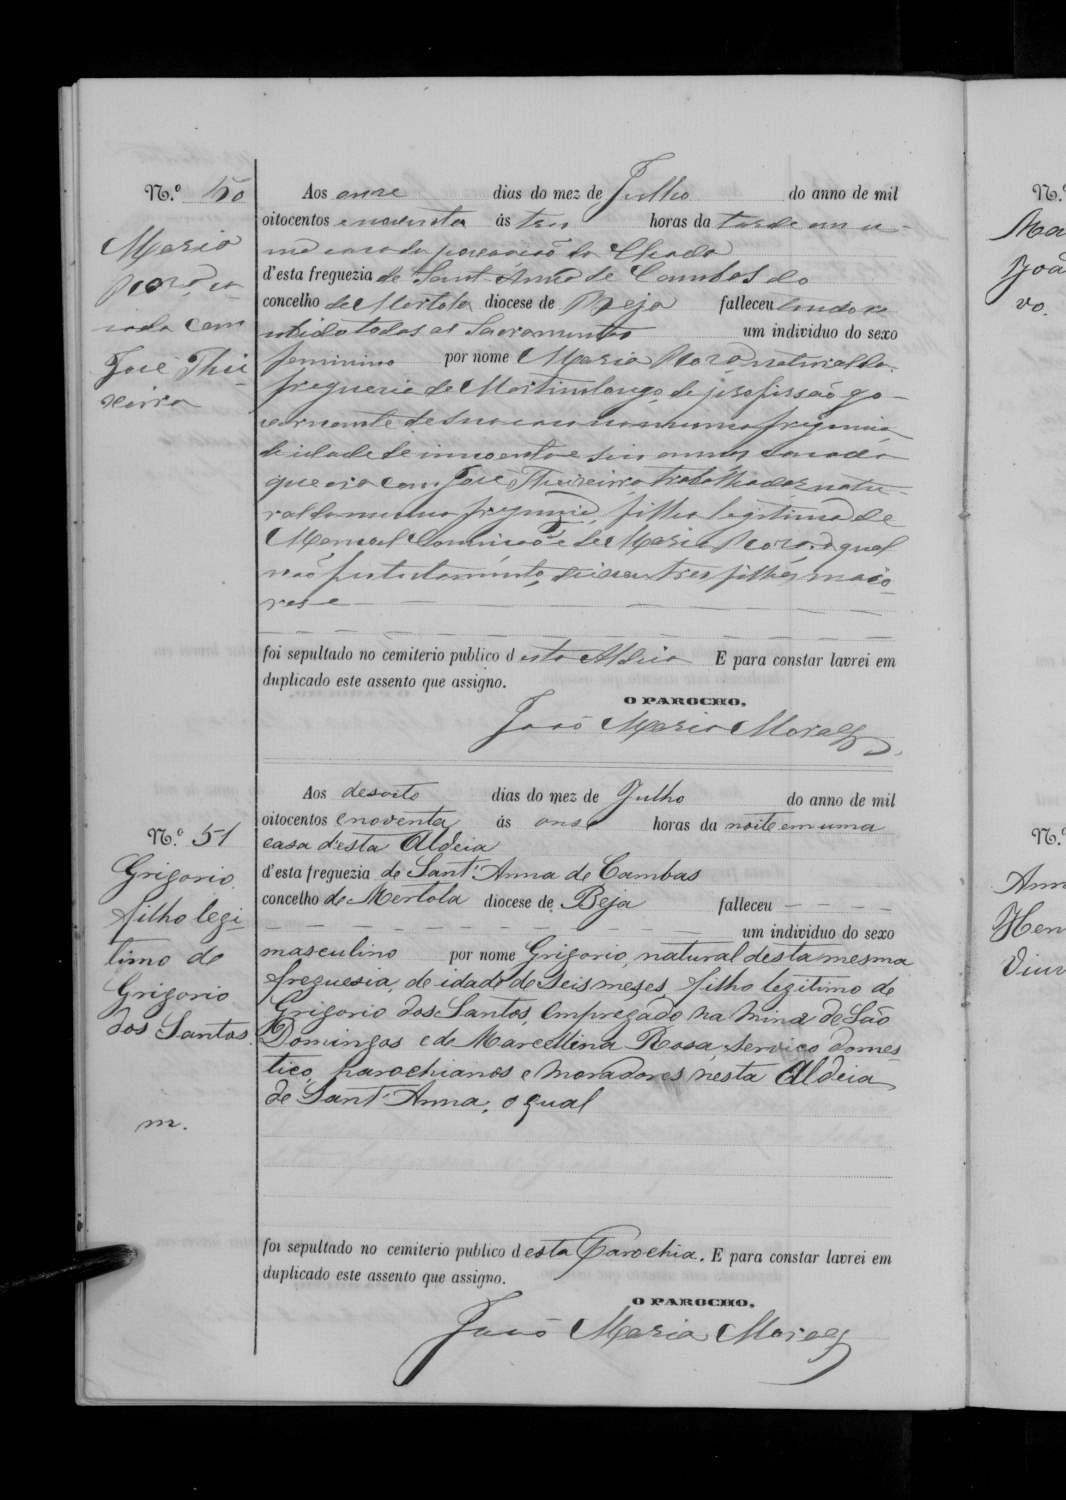 N.º 50
Maria
José Thei-
xeira
Aos onze dias do mez de Julho do anno de mil
oitocentos e noventa ás tres horas da tarde em u-
ma casa da povoação da
d'esta freguezia de Sant'Anna de Cambas do
concelho de Mertola diocese de Beja falleceu tendo re-
cebido todos os Sacramentos um individuo do sexo
feminino por nome Maria natural da
freguezia de Martimlongo, de profissão go-
vernante de sua casa na mesma freguezia,
de idade de annos casada
que era com José Theixeira, trabalhador, natu-
ral da mesma freguezia, filha legitima de
Manoel e de Maria a qual
não fez testamento, deixou tres filhos maio-
res e
foi sepultado no cemiterio publico d esta Aldeia E para constar lavrei em
duplicado este assento que assigno.
O PAROCHO,
João Maria Moraes
N.º 51
Grigorio
filho legi-
timo de
Grigorio
dos Santos.
m.
Aos desoito dias do mez de Julho do anno de mil
oitocentos e noventa ás onse horas da noite em uma
casa d'esta Aldeia
d'esta freguezia de Sant'Anna de Cambas
concelho de Mertola diocese de Beja falleceu
um individuo do sexo
masculino por nome Grigorio, natural desta mesma
freguesia, de idade de Seis meses, filho legitimo de
Grigorio dos Santos, Empregado na Mina de São
Domingos e de Marcellina Rosa, serviço domes-
tico, parochianos e moradores nesta Aldeia
de Sant'Anna, o qual
foi sepultado no cemiterio publico d esta Parochia. E para constar lavrei em
duplicado este assento que assigno.
O PAROCHO,
João Maria Moraes
N.º
N.º